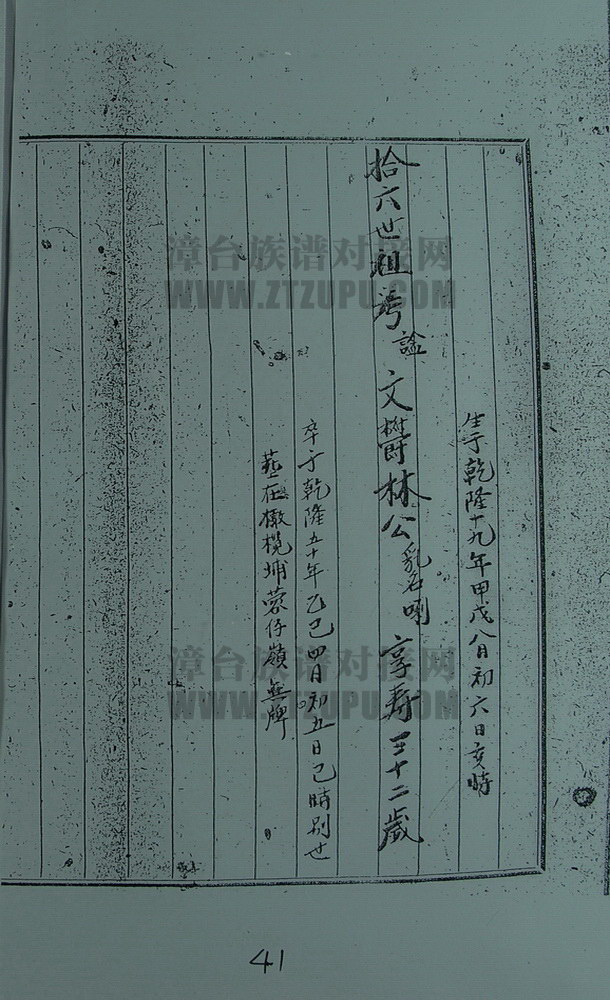 生于乾隆十九年甲戌八月初六日亥時
拾六世祖考諡文欝林公乳名 享寿三十二歲
卒于乾隆五十年乙巳四月初五日巳時别世
塟在橄欖埔 仔嶺無牌
漳台族谱对接网
WWW.ZTZUPU.COM
漳台族谱对接网
WWW.ZTZUPU.COM
41